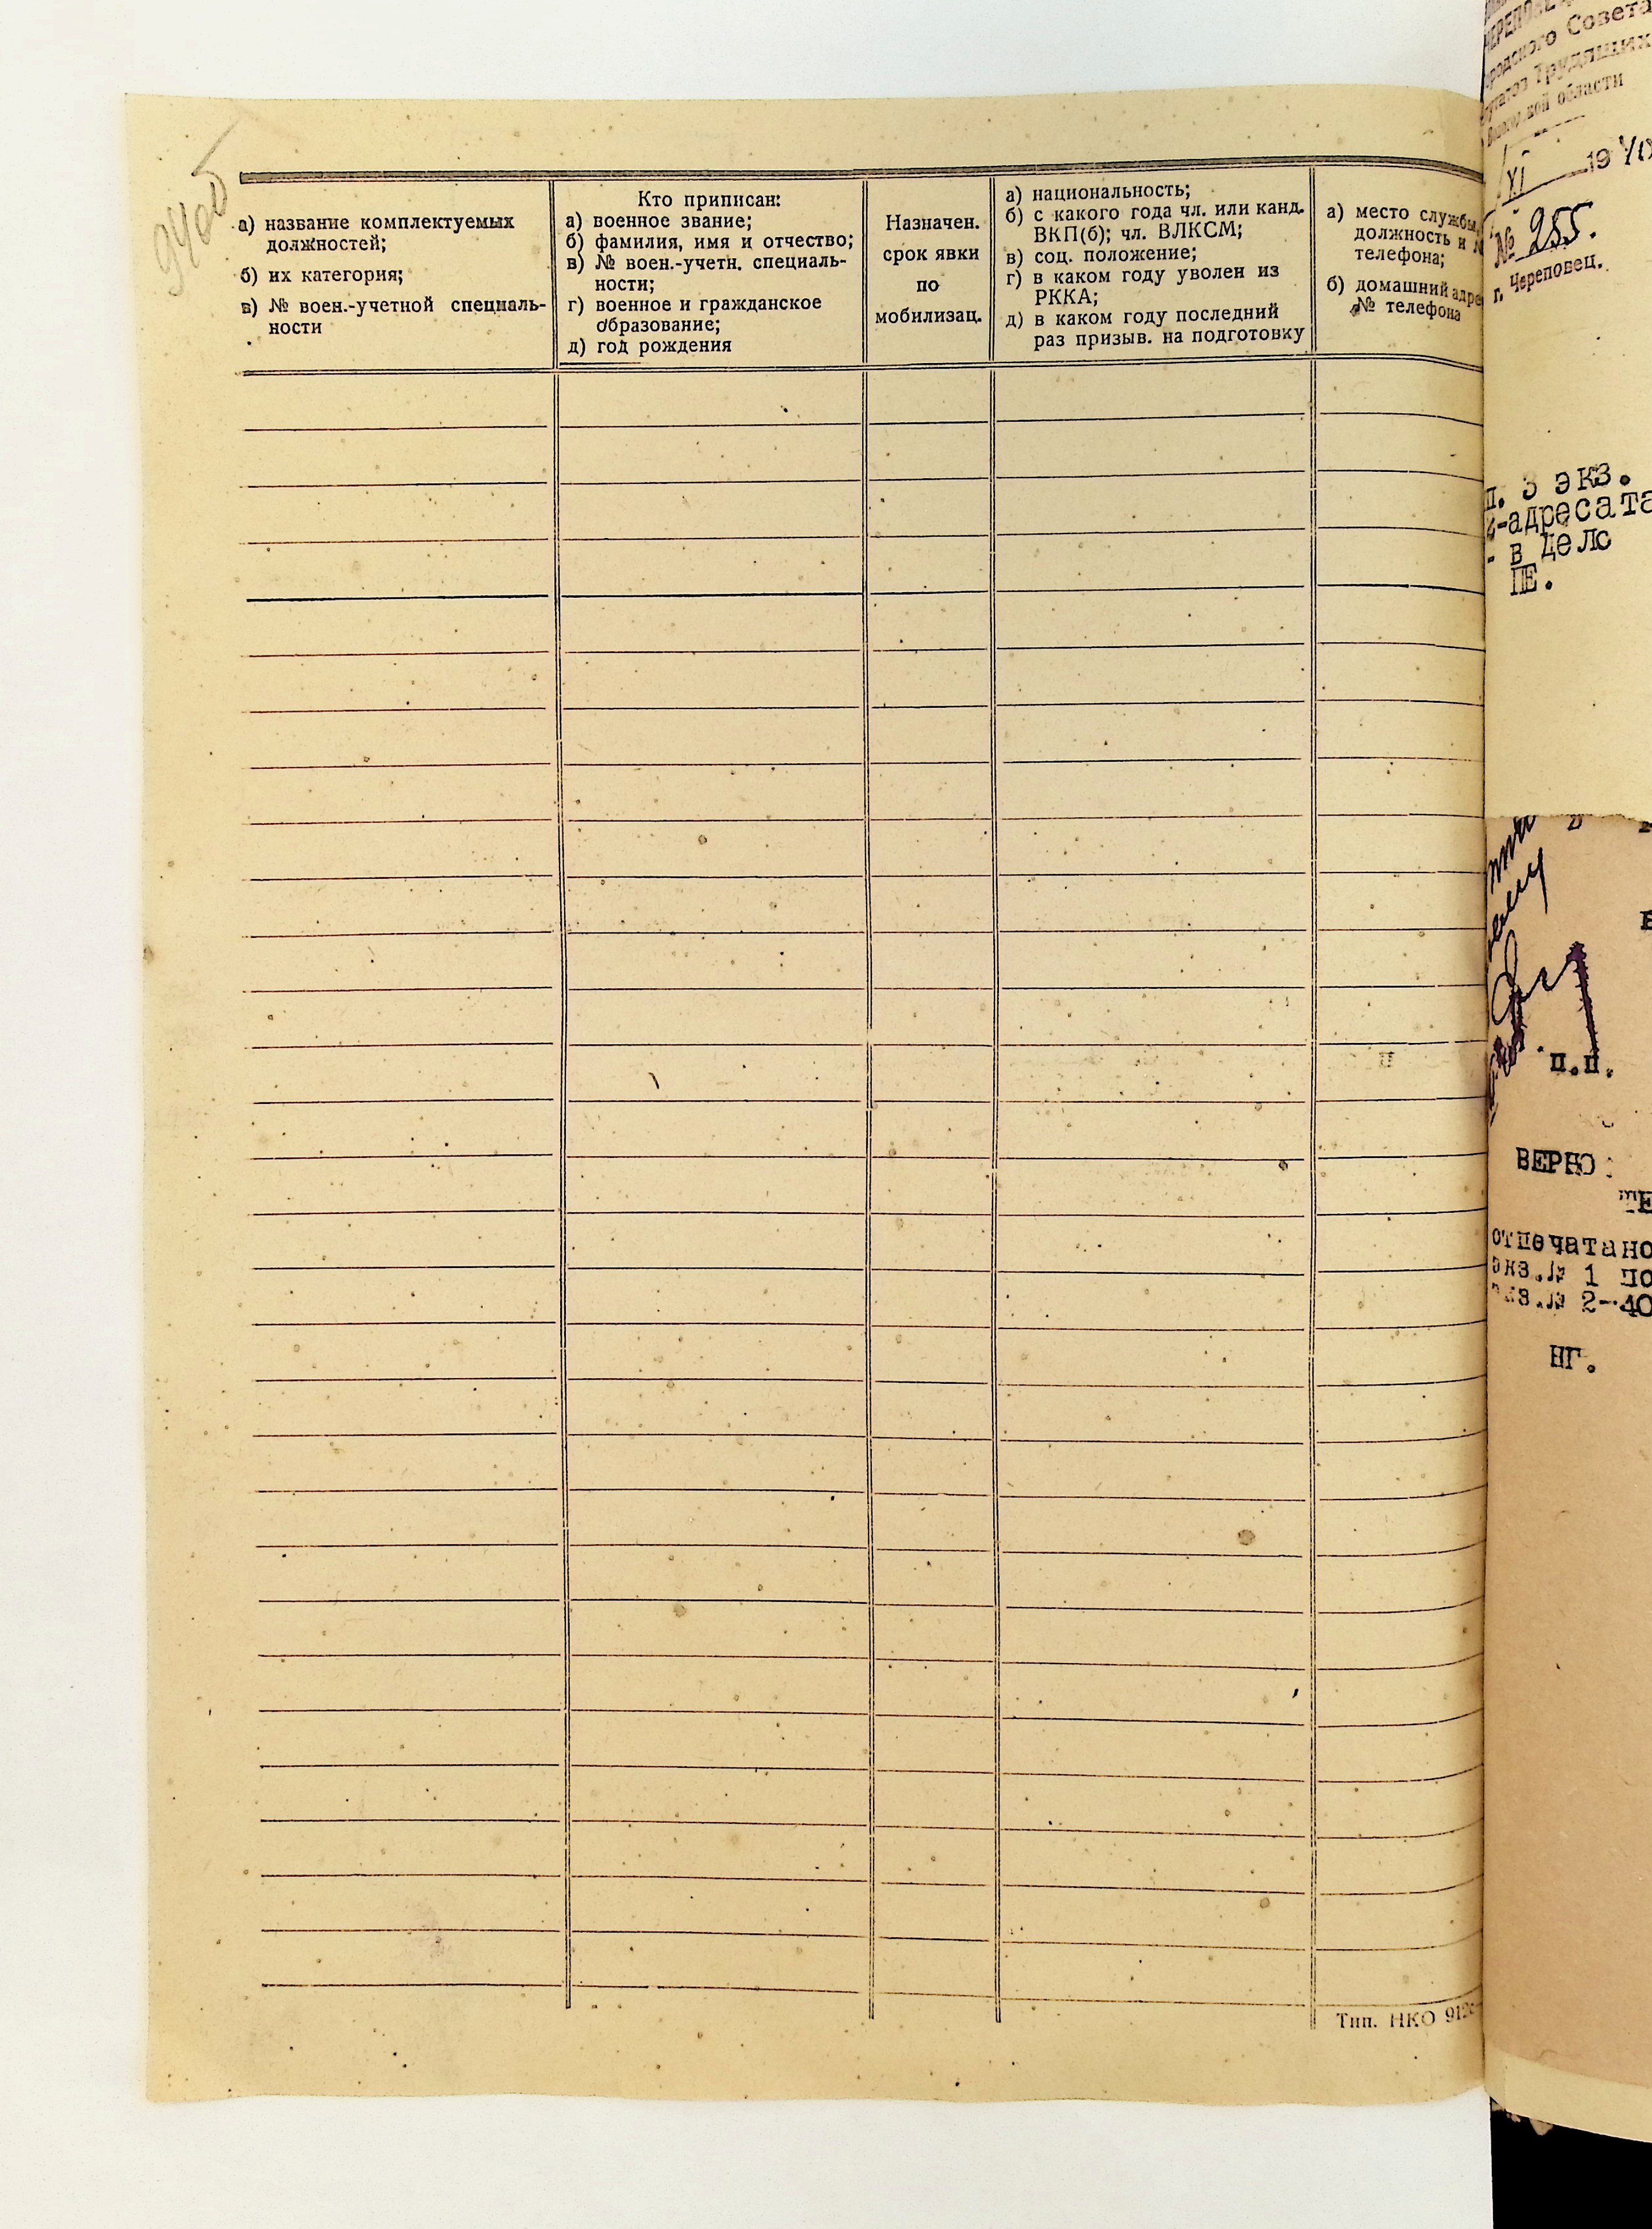 94об
а) название комплектуемых
должностей;
б) их категория;
в) № воен.-учетной специаль-
ности
Кто приписан:
а) военное звание;
б) фамилия, имя и отчество;
в) № воен.-учетн. специаль-
ности;
г) военное и гражданское
образование;
д) год рождения
Назначен.
срок явки
по
мобилизац.
а) национальность;
б) с какого года чл. или канд.
ВКП(б); чл. ВЛКСМ;
в) соц. положение;
г) в каком году уволен из
РККА;
д) в каком году последний
раз призыв. на подготовку
а) место службы,
должность и №
телефона;
б) домашний адре
№ телефона
Тип. НКО 912
Совета
Трудящихся
области
XI 19
№ 255.
г. Череповец.
п. 3 экз.
2-адресата
- в дело
ПЕ.
п.п.
ВЕРНО:
отпечатано
экз.№ 1 по
экз.№ 2-
НГ.